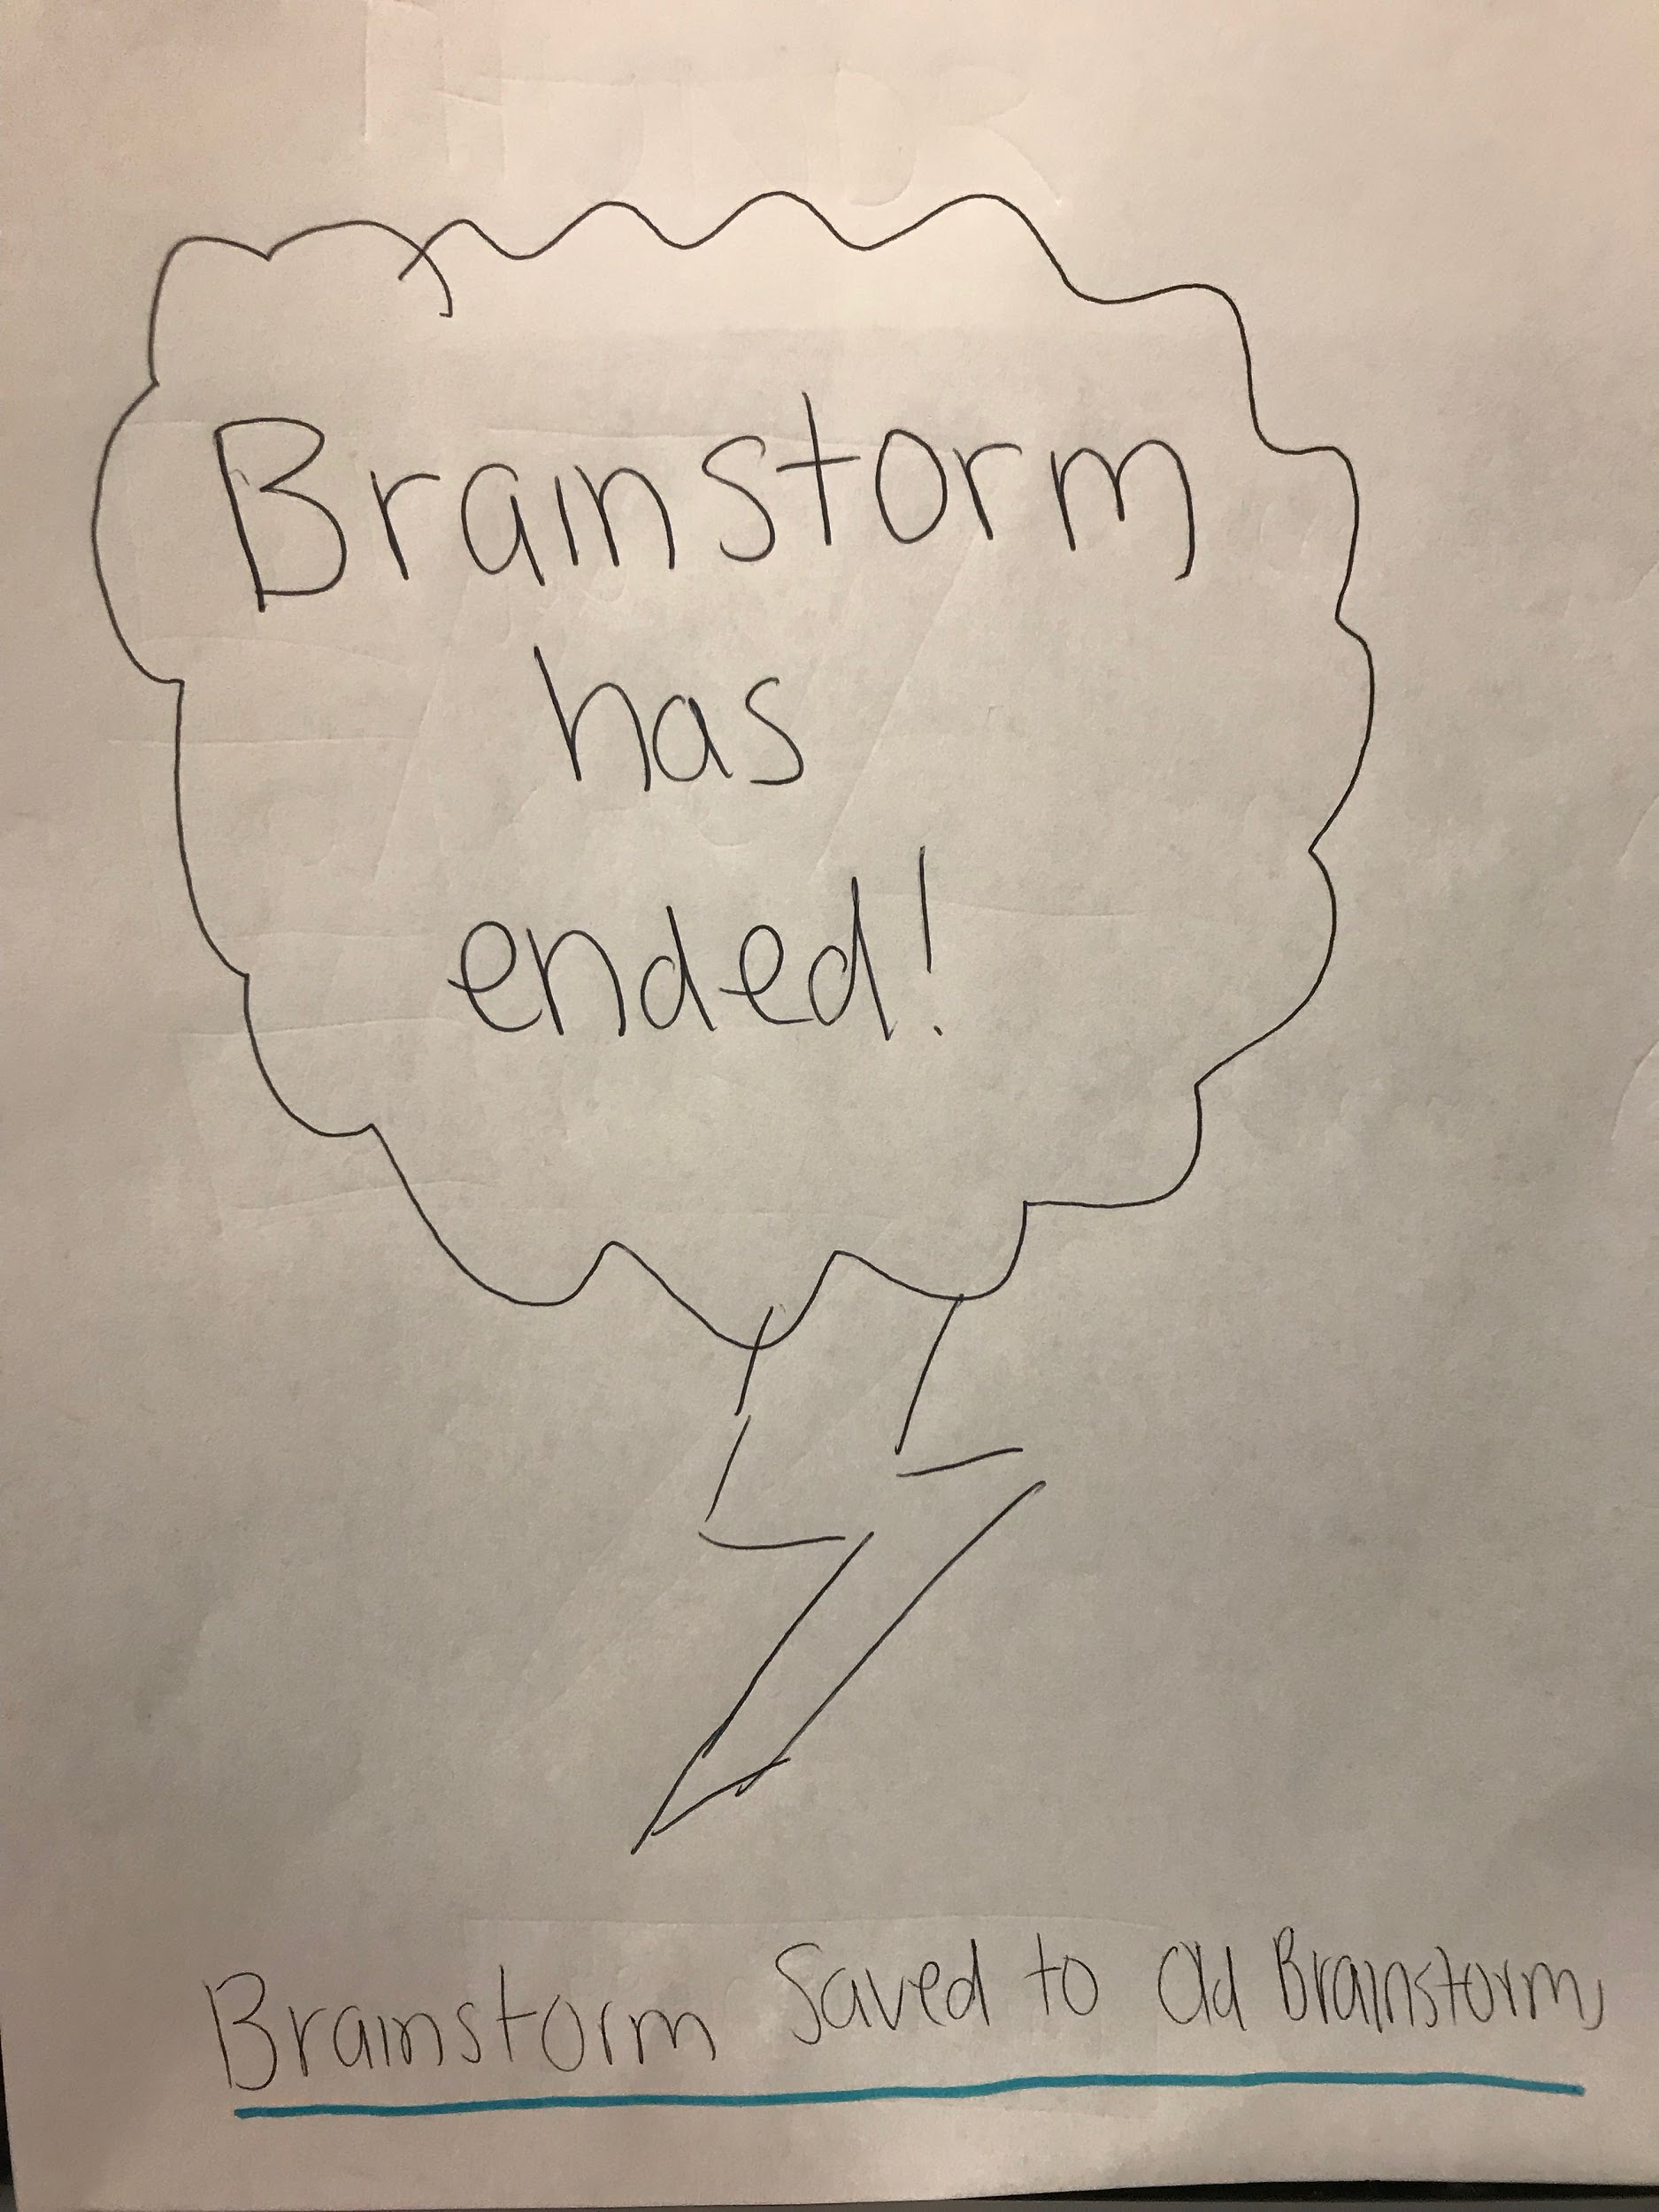 Brainstorm
has
ended!
Brainstorm Saved to Old Brainstorms